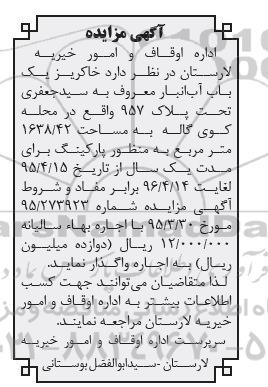 آگهی مزایده
اداره اوقاف و امور خیریه
لارستان در نظر دارد خاکریز یک
باب آب‌انبار معروف به سیدجعفری
تحت پلاک ۹۵۷ واقع در محله
کوی گاله به مساحت ۱۶۳۸/۴۲
متر مربع به منظور پارکینگ برای
مدت یک سال از تاریخ ۹۵/۴/۱۵
لغایت ۹۶/۴/۱۴ برابر مفاد و شروط
آگهی مزایده شماره ۹۵/۲۷۳۹۲۳
مورخ ۹۵/۳/۳۰ با اجاره بهاء سالیانه
۱۲/۰۰۰/۰۰۰ ریال (دوازده میلیون
ریال) به اجاره واگذار نماید.
لذا متقاضیان می‌توانند جهت کسب
اطلاعات بیشتر به اداره اوقاف و امور
خیریه لارستان مراجعه نمایند.
سرپرست اداره اوقاف و امور خیریه
لارستان -سیدابوالفضل بوستانی